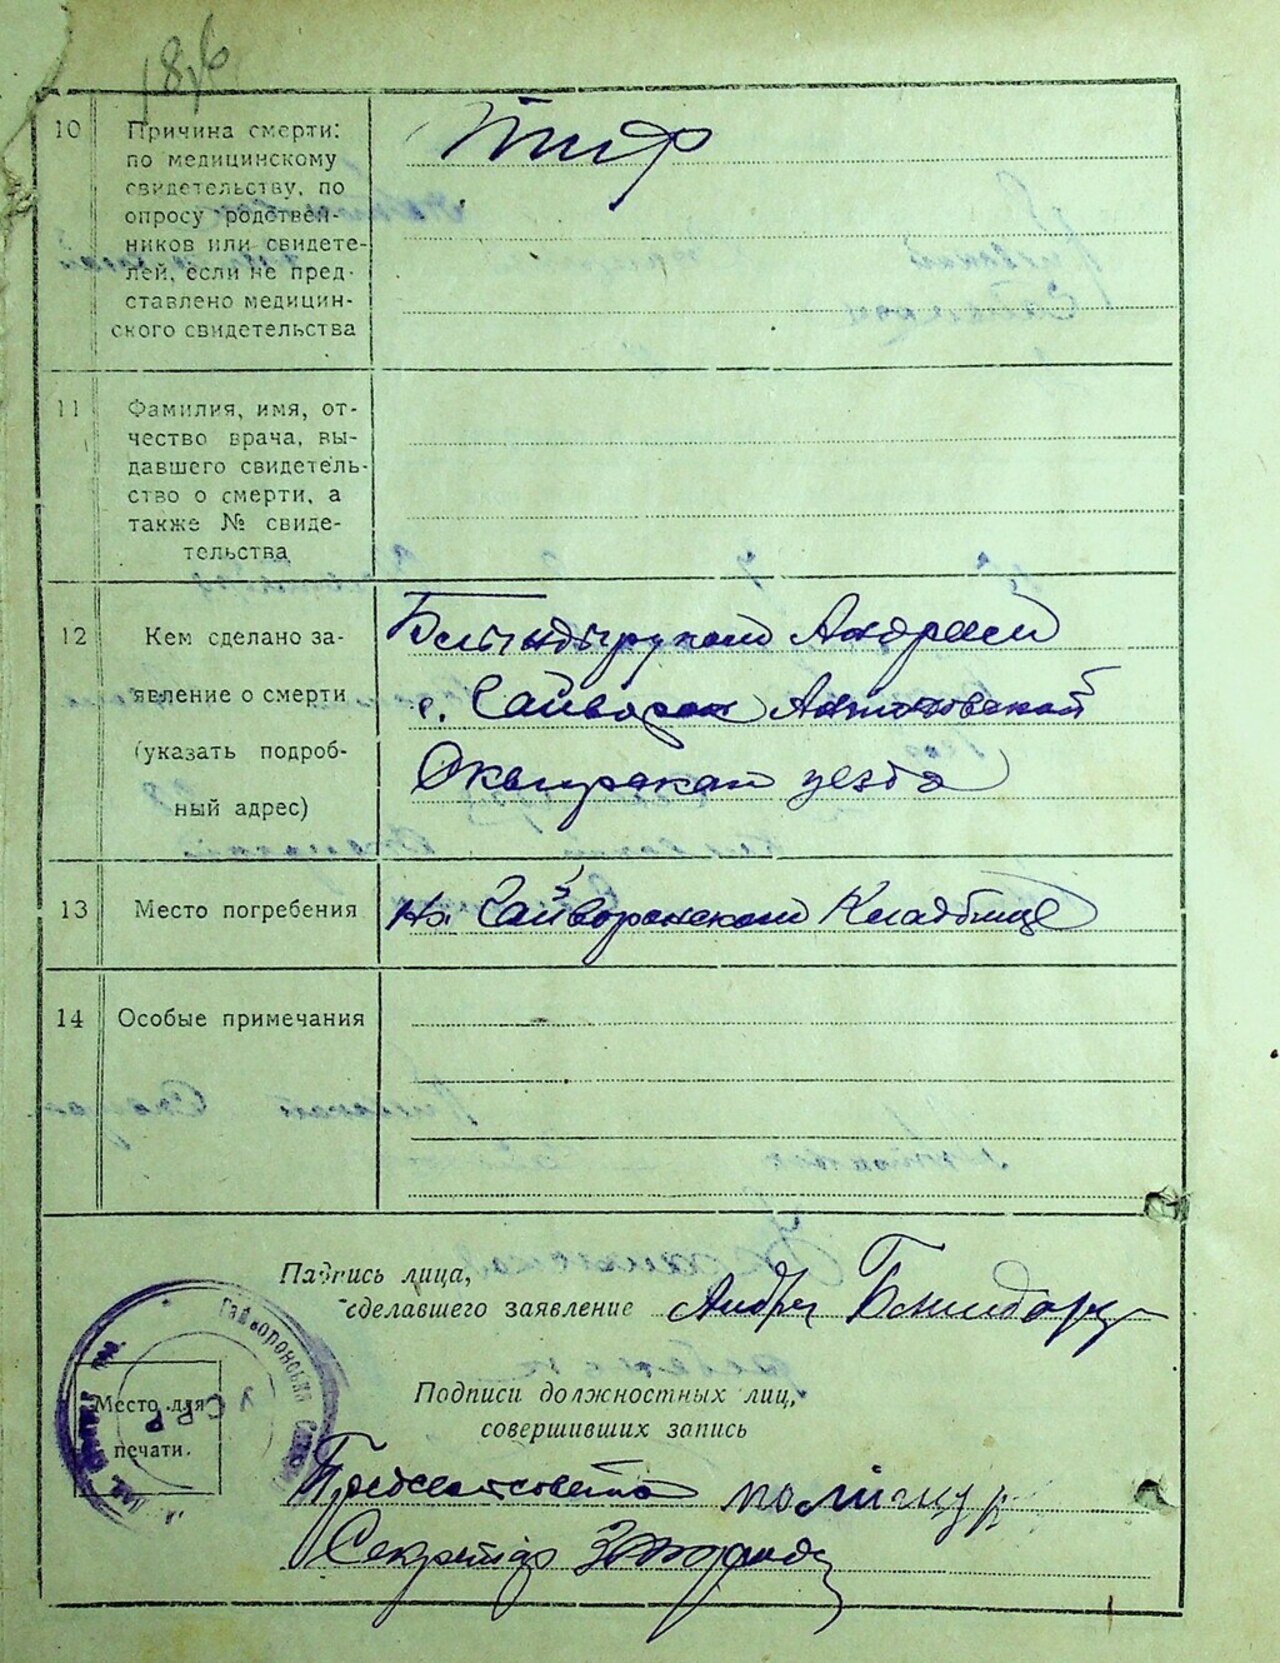 186
10
Причина смерти:
по медицинскому
свидетельству, по
опросу родствен-
ников или свидете-
лей, если не пред-
ставлено медицин-
ского свидетельства
Тиф
11
Фамилия, имя, от-
чество врача, вы-
давшего свидетель-
ство о смерти, а
также № свиде-
тельства
12
Кем сделано за-
явление о смерти
(указать подроб-
ный адрес)
Андреем
с. Гайворон Антоновской
Сквирской уезда
13
Место погребения
На Гайворонском Кладбище
14
Особые примечания
Подпись лица,
сделавшего заявление
Андрей
Подписи должностных лиц,
совершивших запись
Место для
печати.
Гайворонська
Секретарь